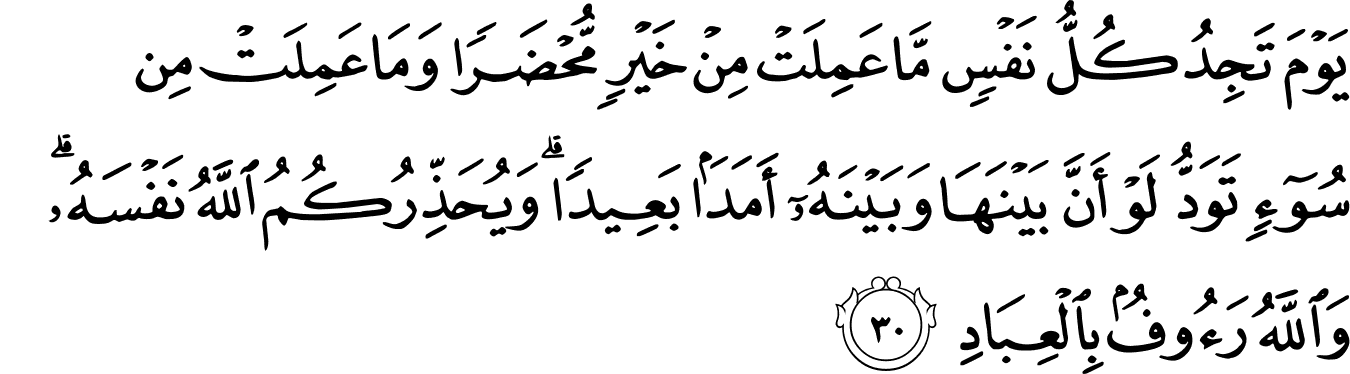 يَوْمَ تَجِدُ كُلُّ نَفْسٍ مَّا عَمِلَتْ مِنْ خَيْرٍ مُّحْضَرًا وَمَا عَمِلَتْ مِن
سُوٓءٍ تَوَدُّ لَوْ أَنَّ بَيْنَهَا وَبَيْنَهُۥٓ أَمَدَۢا بَعِيدًا ۗ وَيُحَذِّرُكُمُ ٱللَّهُ نَفْسَهُۥ ۗ
وَٱللَّهُ رَءُوفُۢ بِٱلْعِبَادِ ٣٠